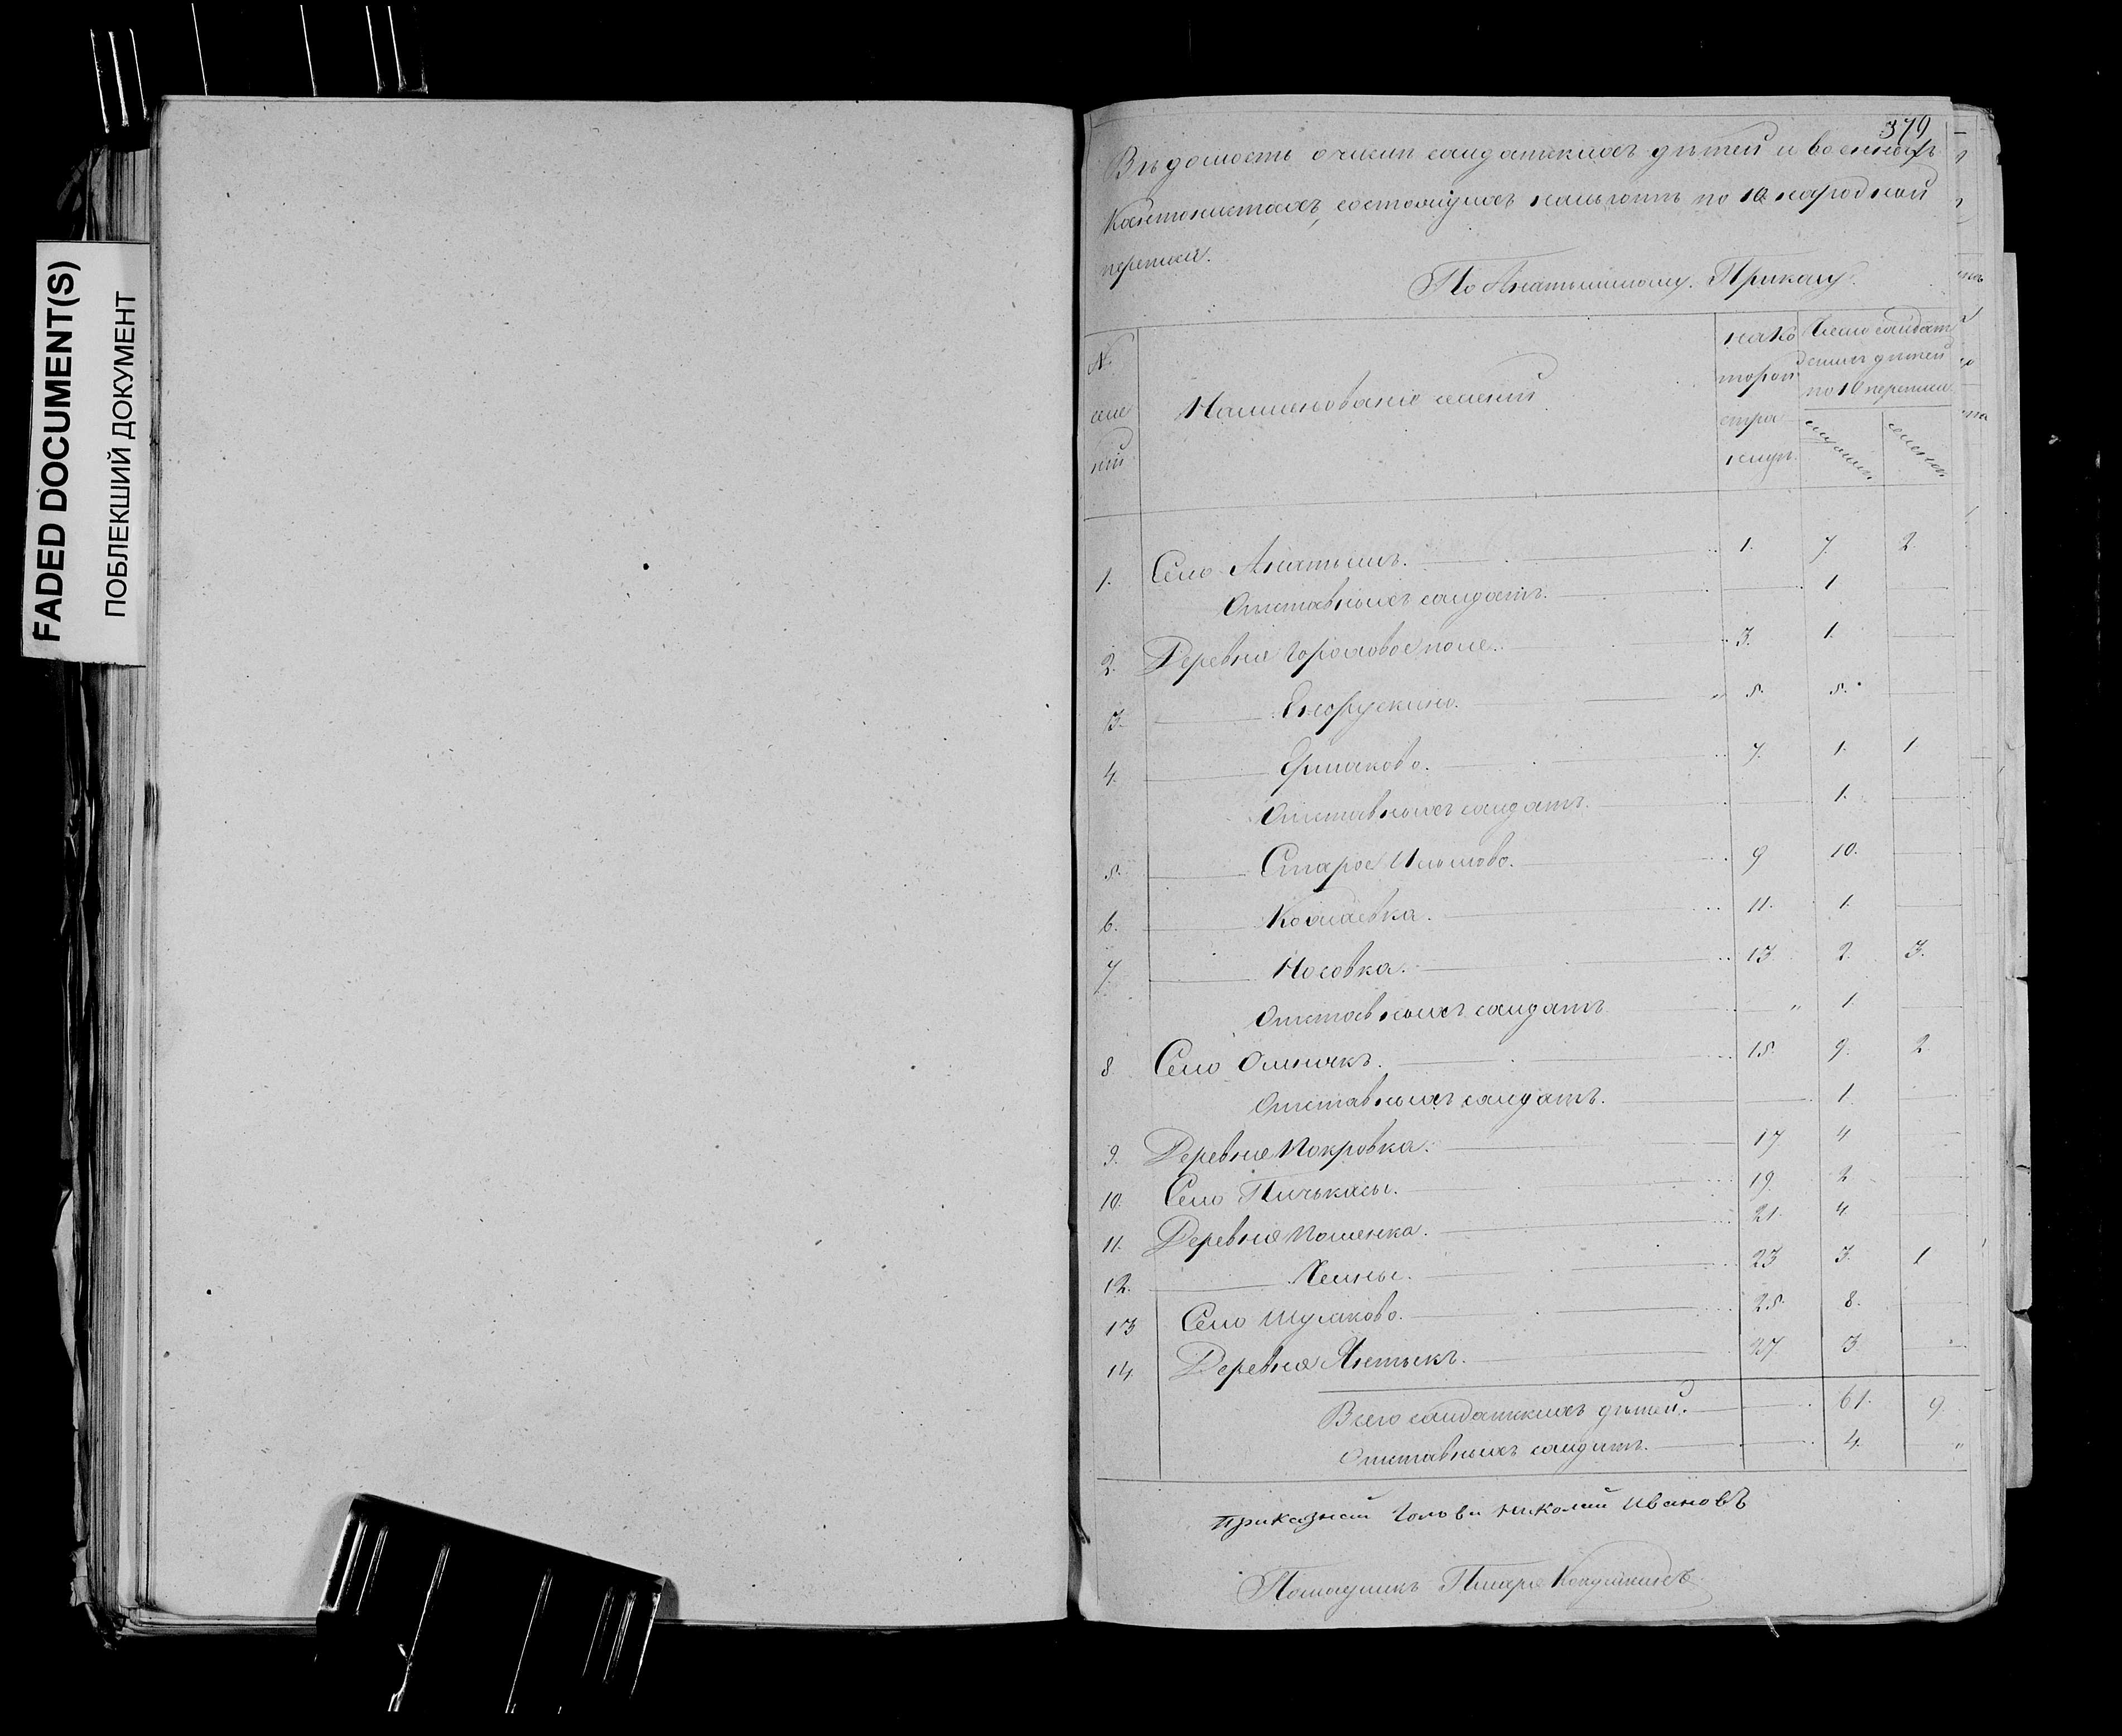 FADED DOCUMENT(S)
ПОБЛЕКШИЙ ДОКУМЕНТ
379
Вѣдомость о числѣ солдатскихъ дѣтей и военныхъ
Кантонистахъ, состоящихъ на лицо по 10 народной
переписи.
По Анатышскому Приказу.
№
селе
ній
Наименованіе селеній
на ко
торой
стра
ницѣ.
Число солдат
скихъ дѣтей
по 10 переписи
мужеск.
женск.
1. Село Анатышъ. 1. 7. 2
Отставныхъ солдатъ. 1
2. Деревня Гороховое поле. 3. 1.
3. 5. 5.
4. Ермаково. 7. 1. 1
Отставныхъ солдатъ. 1.
5. Старое 9 10.
6. 11. 1.
7 Носовка. 13 2. 3.
Отставныхъ солдатъ " 1.
8 Село Ошнякъ. 15. 9. 2
Отставныхъ солдатъ. 1.
9. Деревня Покровка. 17 4
10. Село Пичкасы. 19. 2
11. Деревня 21. 4.
12. 23 3. 1
13 Село Шумково. 25. 8.
14. Деревня Янтыкъ. 27 3
Всего солдатскихъ дѣтей. 61. 9
Отставныхъ солдатъ. 4. "
Приказной Голова Николай Ивановъ
Помощникъ Писаря